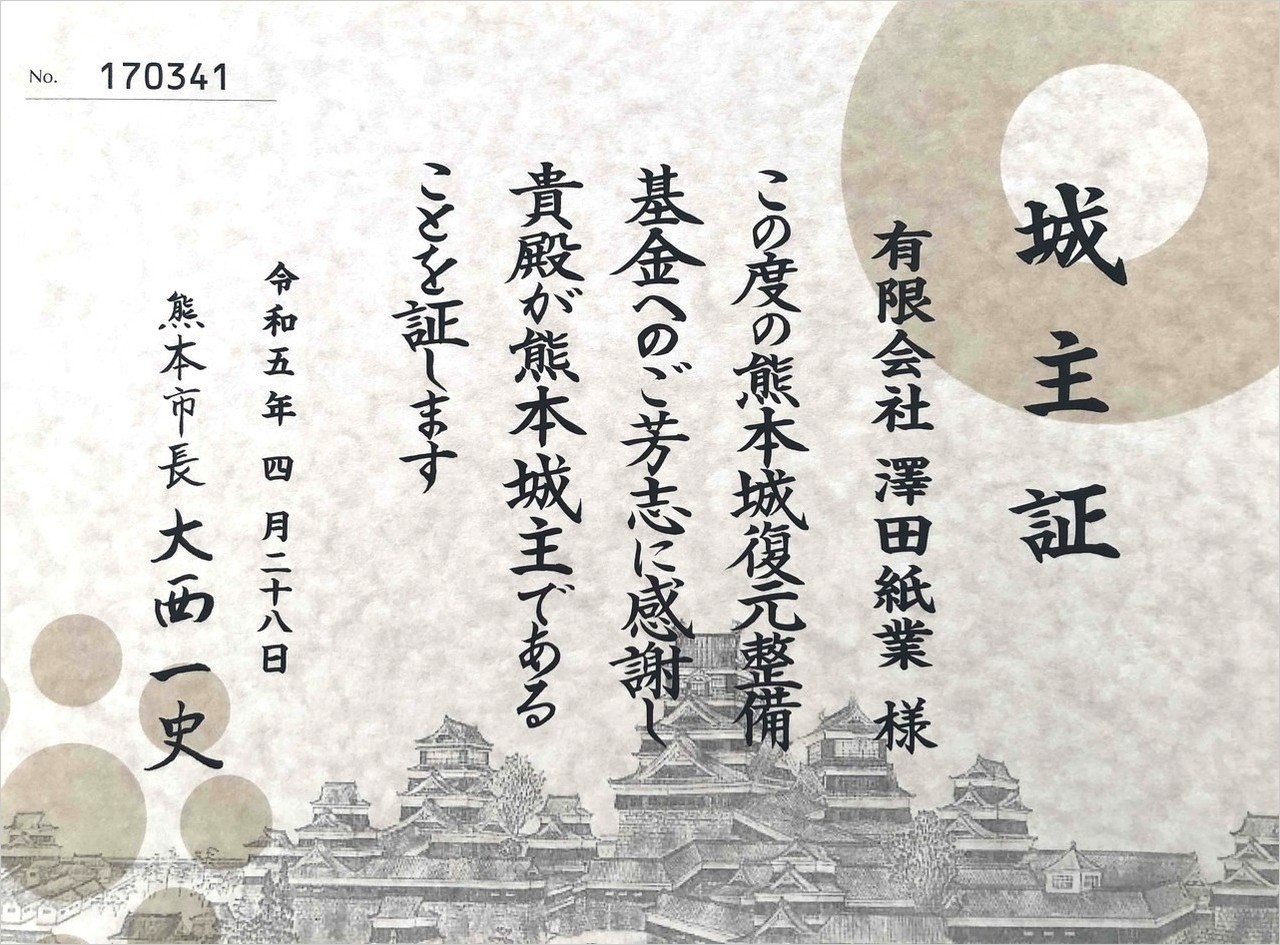 No. 170341
城主証
有限会社 澤田紙業 様
この度の熊本城復元整備
基金へのご芳志に感謝し
貴殿が熊本城主である
ことを証します
令和五年 四月二十八日
熊本市長 大西一史